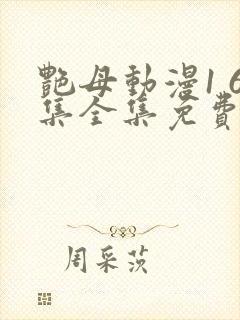 艷母動漫1 6
集全集免費
周采茨